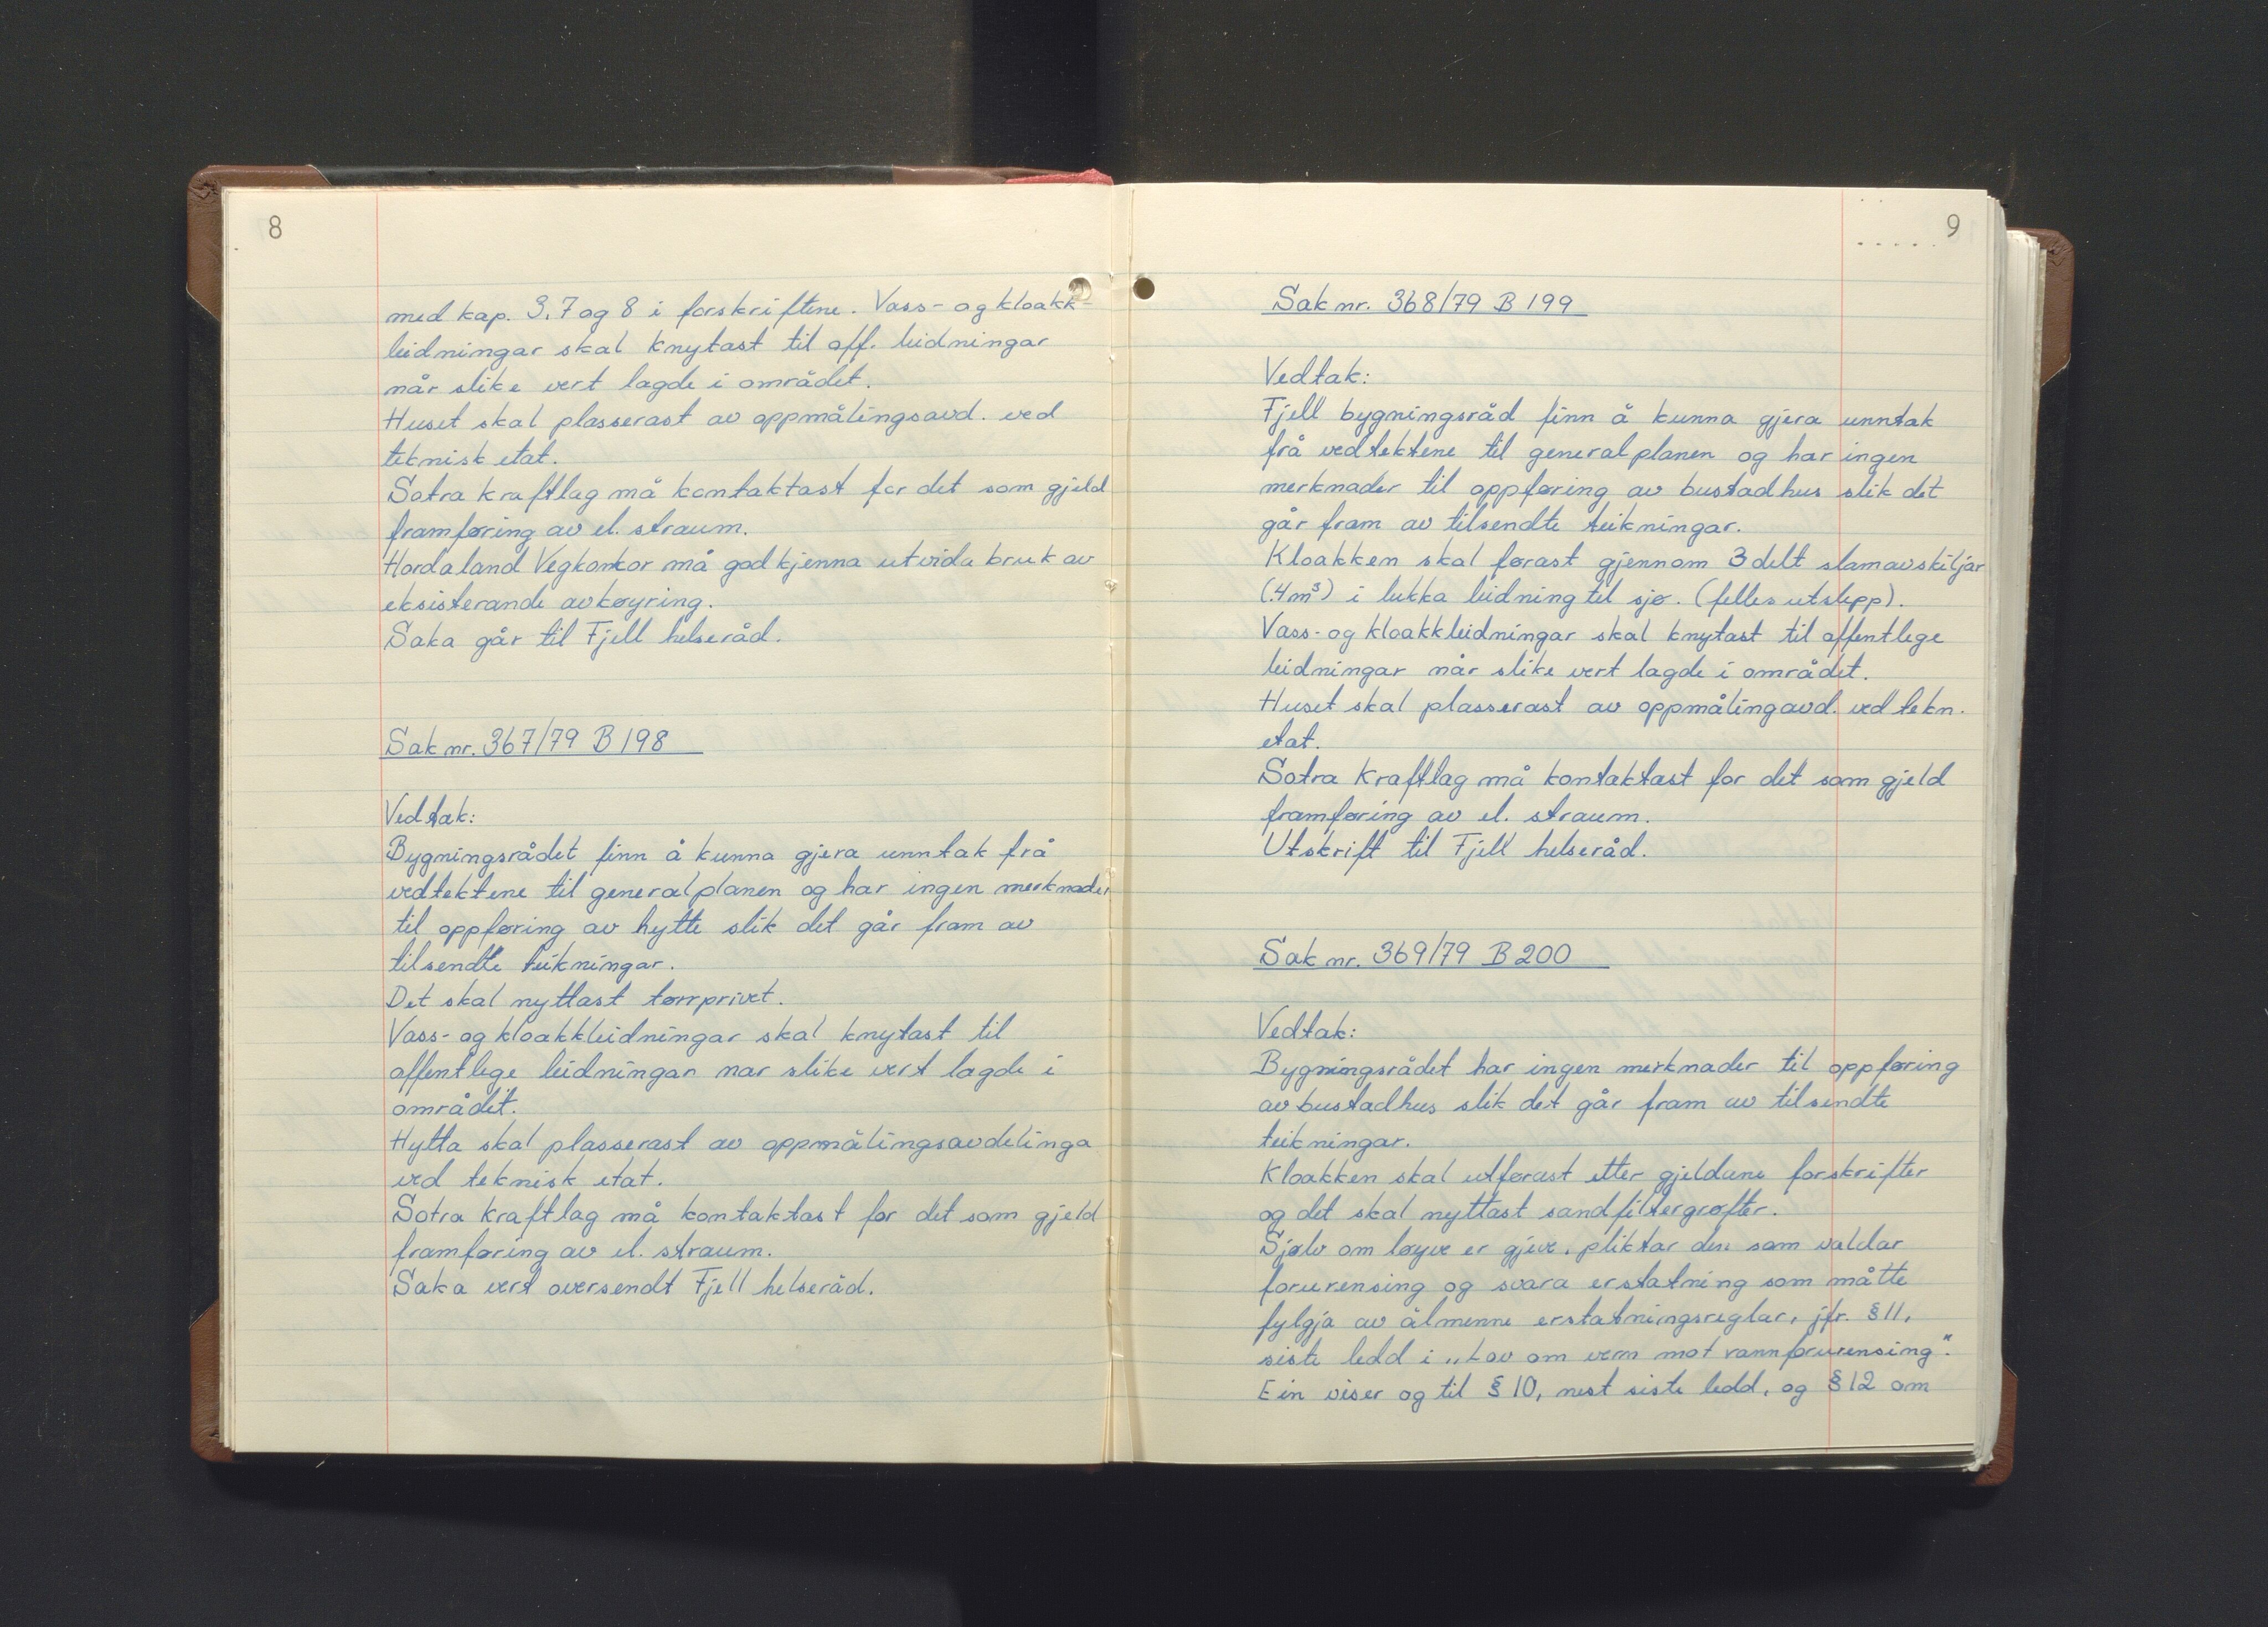 8
med kap. 3, 7 og 8 i forskriftene. Vass- og kloakk-
leidningar skal knytast til off. leidningar
når slike vert lagde i området.
Huset skal plasserast av oppmålingsavd. ved
teknisk etat.
Sotra kraftlag må kontaktast for det som gjeld
framføring av el. straum.
Hordaland Vegkontor må godkjenna utvida bruk av
eksisterande avkøyring.
Saka går til Fjell helseråd.
Sak nr. 367/79 B 198
Vedtak:
Bygningsrådet finn å kunna gjera unntak frå
vedtektene til generalplanen og har ingen merknader
til oppføring av hytte slik det går fram av
tilsendte teikningar.
Det skal nyttast tørrprivet.
Vass- og kloakkleidningar skal knytast til
offentlege leidningar nar slike vert lagde i
området.
Hytta skal plasserast av oppmålingsavdelinga
ved teknisk etat.
Sotra kraftlag må kontaktast for det som gjeld
framføring av el. straum.
Saka vert oversendt Fjell helseråd.
9
Sak nr. 368/79 B 199
Vedtak:
Fjell bygningsråd finn å kunna gjera unntak
frå vedtektene til generalplanen og har ingen
merknader til oppføring av bustadhus slik det
går fram av tilsendte teikningar.
Kloakken skal førast gjennom 3 delt slamavskiljar
(4m³) i lukka leidning til sjø. (felles utslepp).
Vass- og kloakkleidningar skal knytast til offentlege
leidningar når slike vert lagde i området.
Huset skal plasserast av oppmålingavd. ved tekn.
etat.
Sotra Kraftlag må kontaktast for det som gjeld
framføring av el. straum.
Utskrift til Fjell helseråd.
Sak nr. 369/79 B 200
Vedtak:
Bygningsrådet har ingen merknader til oppføring
av bustadhus slik det går fram av tilsendte
teikningar.
Kloakken skal utførast etter gjeldune forskrifter
og det skal nyttast sandfiltergrøfter.
Sjølv om løyve er gjeve, pliktar den som valdar
forureinsing og svara erstatning som måtte
fylgja av ålmenne erstatningsreglar, jfr. § 11,
siste ledd i „Lov om vern mot vannforurensing".
Ein viser og til § 10, nest siste ledd, og § 12 om